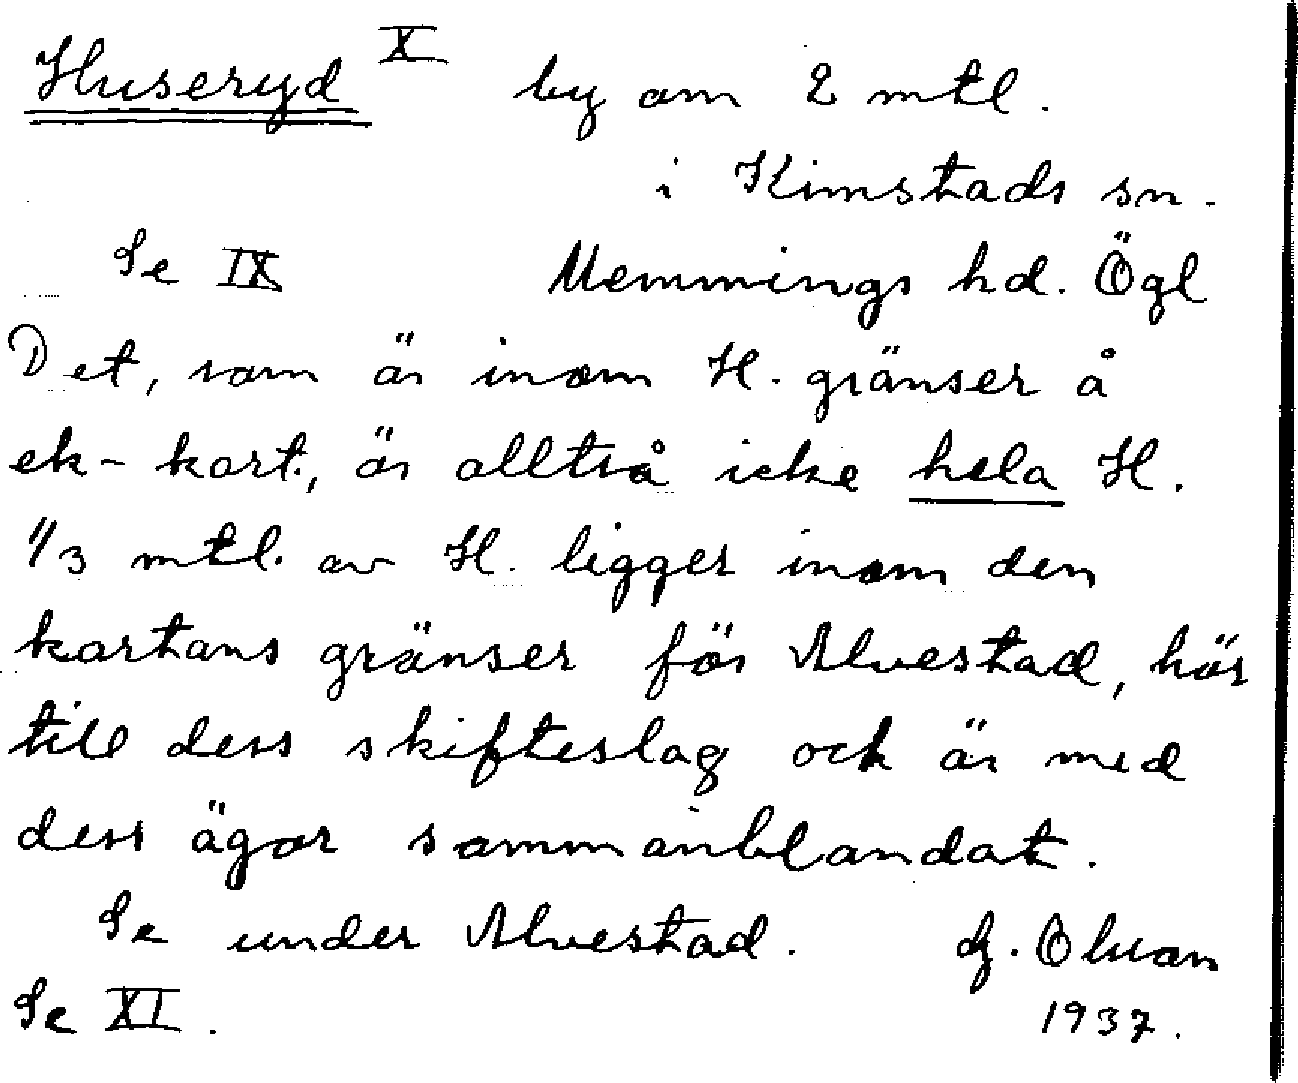 Huseryd X by om 2 mtl.
i Kimstads sn.
Se IX Memmings hd. Ögl
Det, som är inom H. gränser å
ek-kart., är alltså icke hela H.
1/3 mtl. av H. ligger inom den
kartans gränser för Alvestad, hör
till dess skifteslag och är med
dess ägor sammanblandat.
Se under Alvestad. G. Olsson
Se XI. 1937.